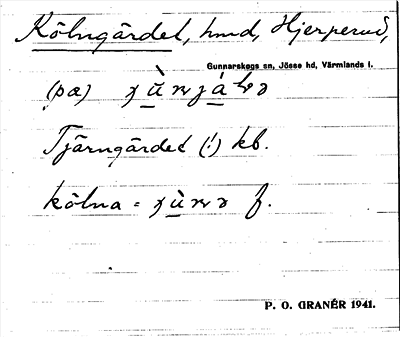 Kölngärdet, hmd, Hjerperud,
Gunnarskogs sn, Jösse hd, Värmlands l.
(pæ)
Tjärngärdet (!) kb.
kölna = f.
P. O. GRANÉR 1941.